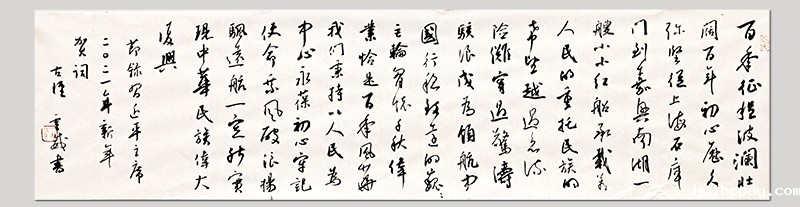 百年征程波澜壮
阔百年初心历久
弥坚从上海石库
门到嘉兴南湖一
艘小小红船承载着
人民的重托民族的
希望越过急流
险滩穿过惊涛
骇浪成为领航中
国行稳致远的巍巍
巨轮胸怀千秋伟
业恰是百年风华
我们秉持以人民为
中心永葆初心牢记
使命乘风破浪扬
帆远航一定能实
现中华民族伟大
复兴
节录习近平主席
二〇二一年新年
贺词